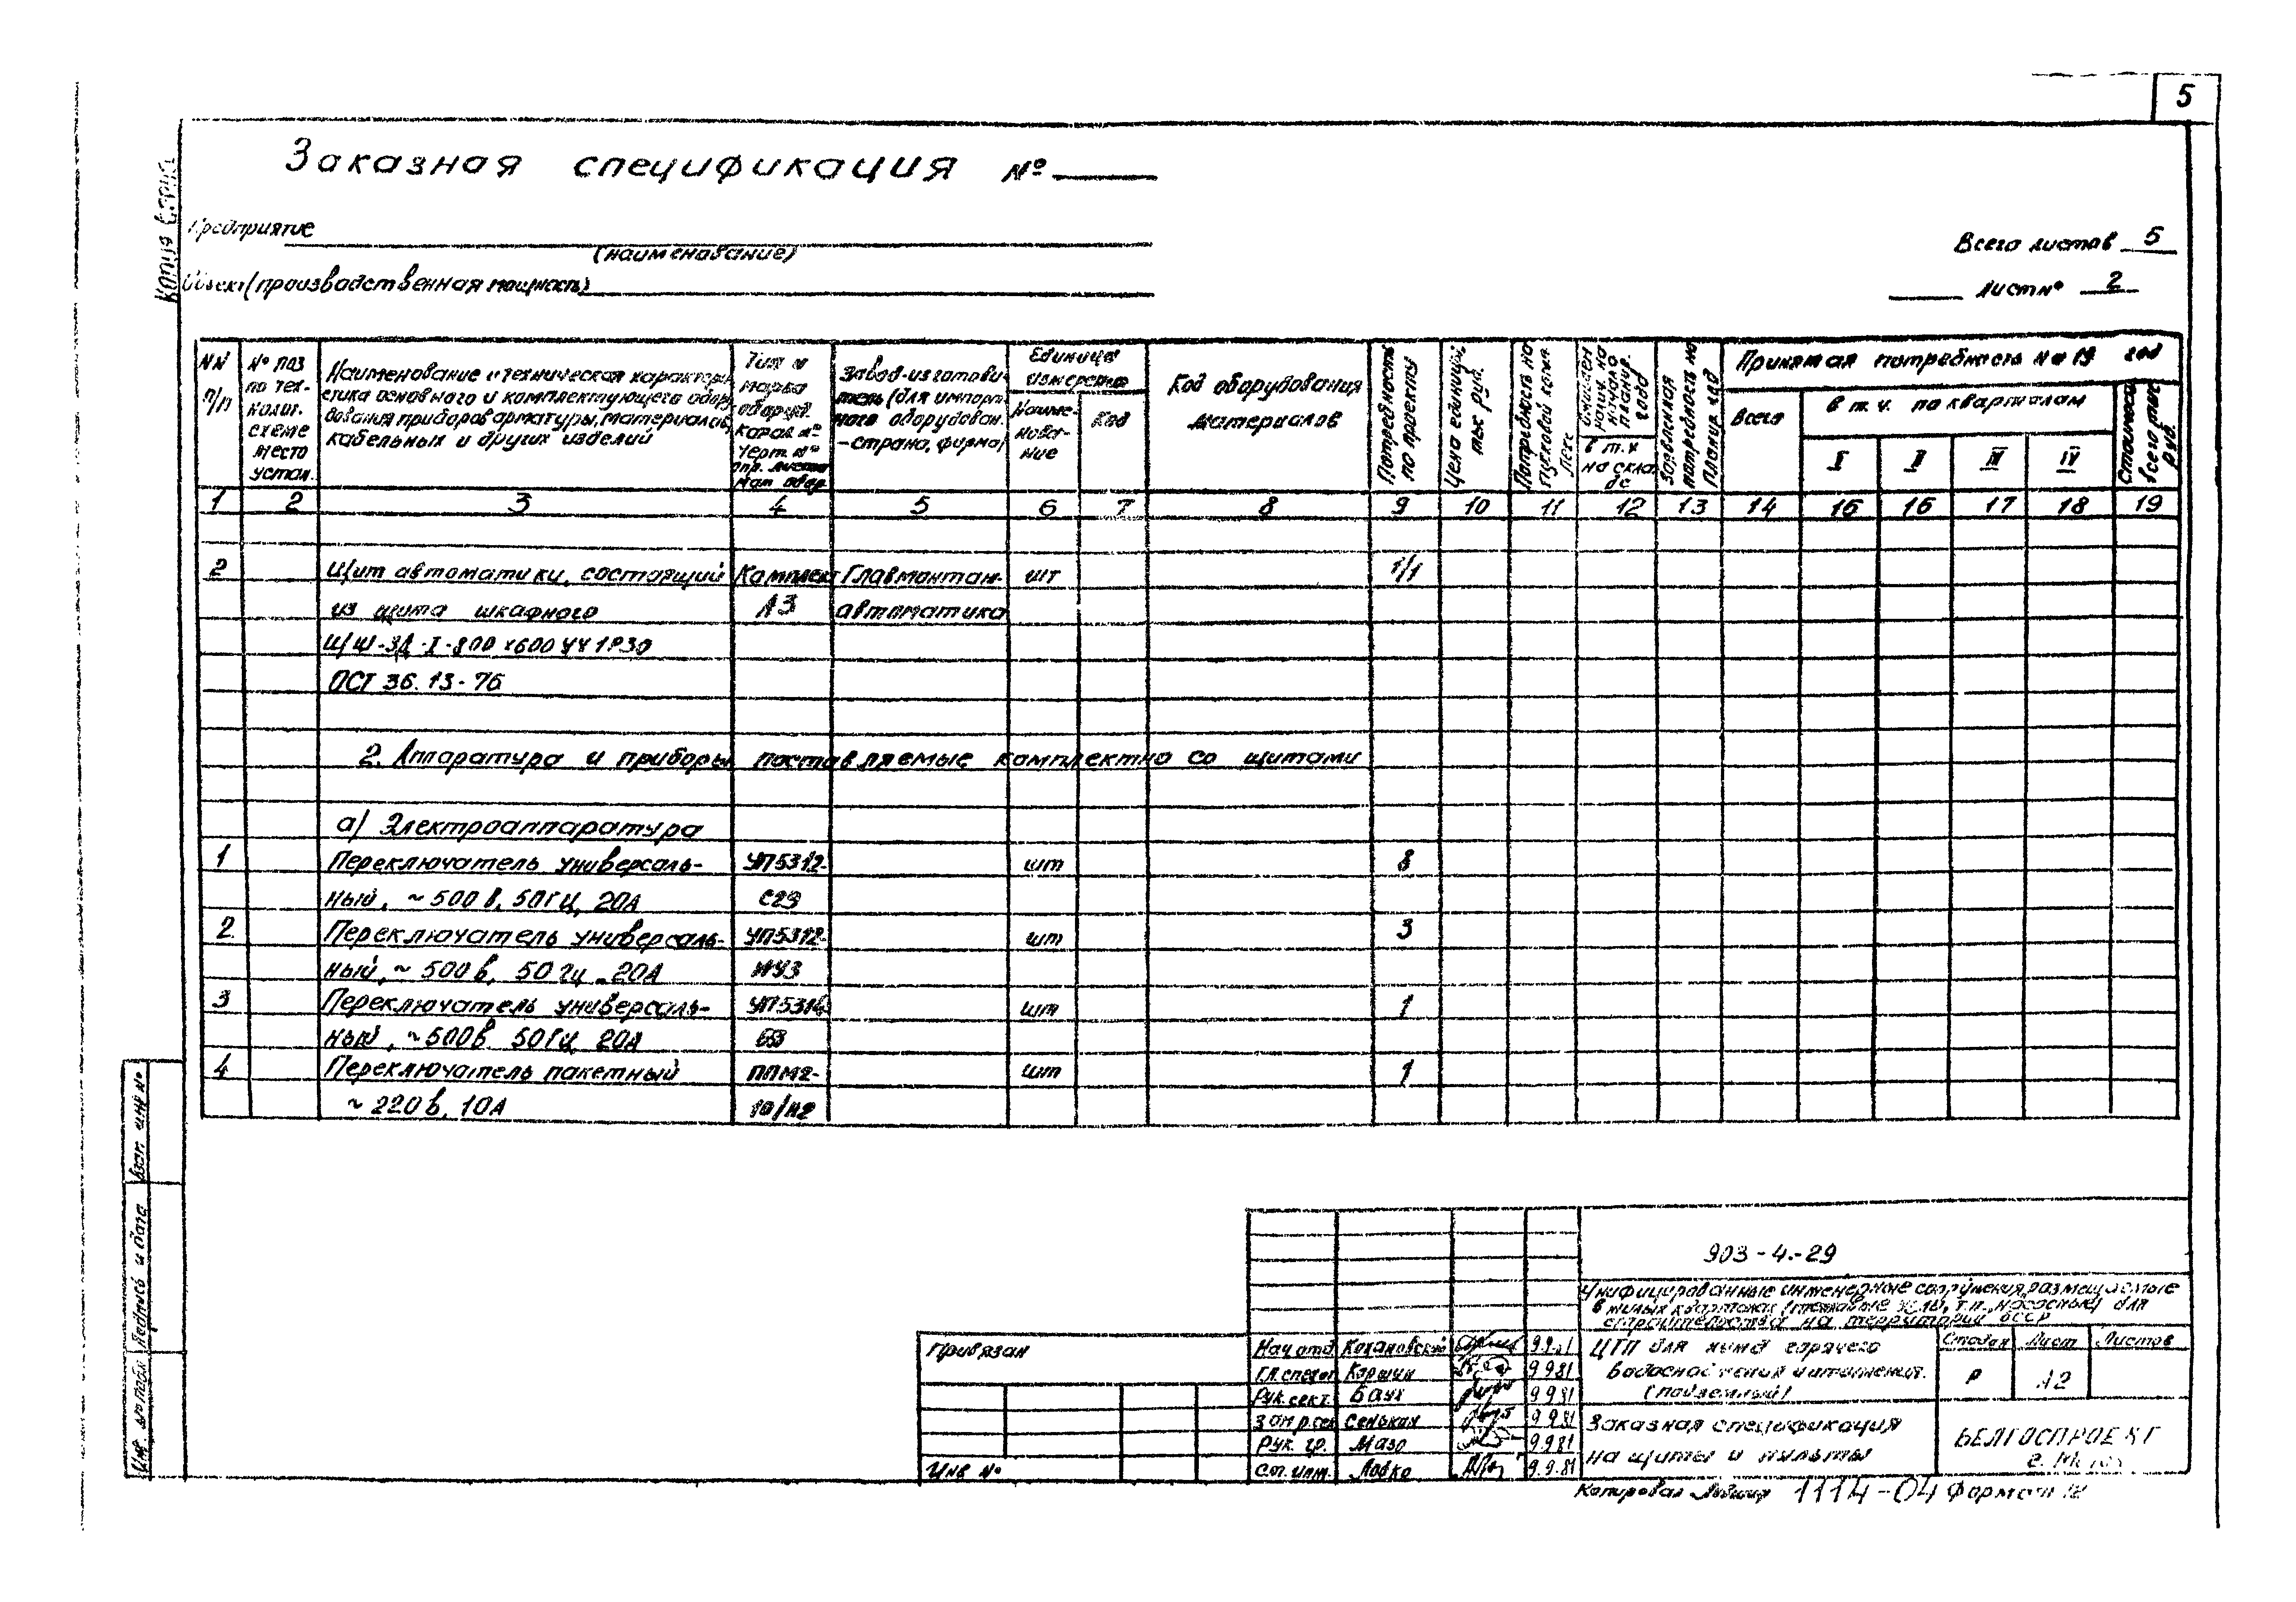 5
Заказная спецификация №
Предприятие
(наименование)
Всего листов 5
Объект (производственная мощность)
Лист № 2
Копия верна
NN п/п
№ поз по тех- колог. схеме место устан.
Наименование и техническая характери-
стика основного и комплектующего обору-
дования приборов арматуры, материалов,
кабельных и других изделий
Тип и марка оборуд. катал. № черт. № опр. листа мат. обор.
Завод-изготови-
тель (для импорт-
ного оборудован.
-страна, фирма)
Единица измерения
Наиме- нова- ние
Код
Код оборудования
материалов
Потребность по проекту
Цена единицы тыс руб.
Потребность на пусковой комплекс
Ожидаем налич. на начало планир. года
в т.ч на скла де
Заявленная потребность на планир. год
Принятая потребность на 19 год
Всего
в т.ч. по кварталам
I II III IV
Стоимость всего тыс руб.
1 2 3 4 5 6 7 8 9 10 11 12 13 14 15 16 17 18 19
2 Щит автоматики, состоящий Комплект Главмонтаж- шт 1/1
из щита шкафного А3 автоматика
ЩШ-ЗД-I-800х600 УЧ 1Р30
ОСТ 36.13-76
2. Аппаратура и приборы поставляемые комплектно со щитами
а) Электроаппаратура
1 Переключатель универсаль- УП5312- шт 8
ный, ~ 500 в, 50 ГЦ, 20А С29
2. Переключатель универсаль- УП5312- шт 3
ный, ~ 500 в, 50 гц, 20А
3 Переключатель универсаль- шт 1
ный, ~500 в 50 ГЦ, 20А
4 Переключатель пакетный ППМ2- шт 1
~ 220 в, 10А 10/Н2
Взам. инв №
Подпись и дата
Инв. № подл
903-4.-29
Унифицированные инженерные сооружения, размещаемые
в жилых кварталах (тепловые т.п., насосные) для
строительства на территории БССР
Привязан
Инв №
Нач отд Кохановский 9.9.81
Гл. спец Коршун 9 9 81
Рук. сект. Баух 9 9 81
Зам р.сек Сенькин 9 9 81
Рук. гр. Мазо 9.9 81
Ст. инж. Ловко 9.9.81
ЦТП для нужд горячего
водоснабжения и отопления.
(подземный)
Стадия Лист Листов
Р А2
Заказная спецификация
на щиты и пульты
БЕЛГОСПРОЕКТ
г. Минск
Копировал 1114-04 Формат 12